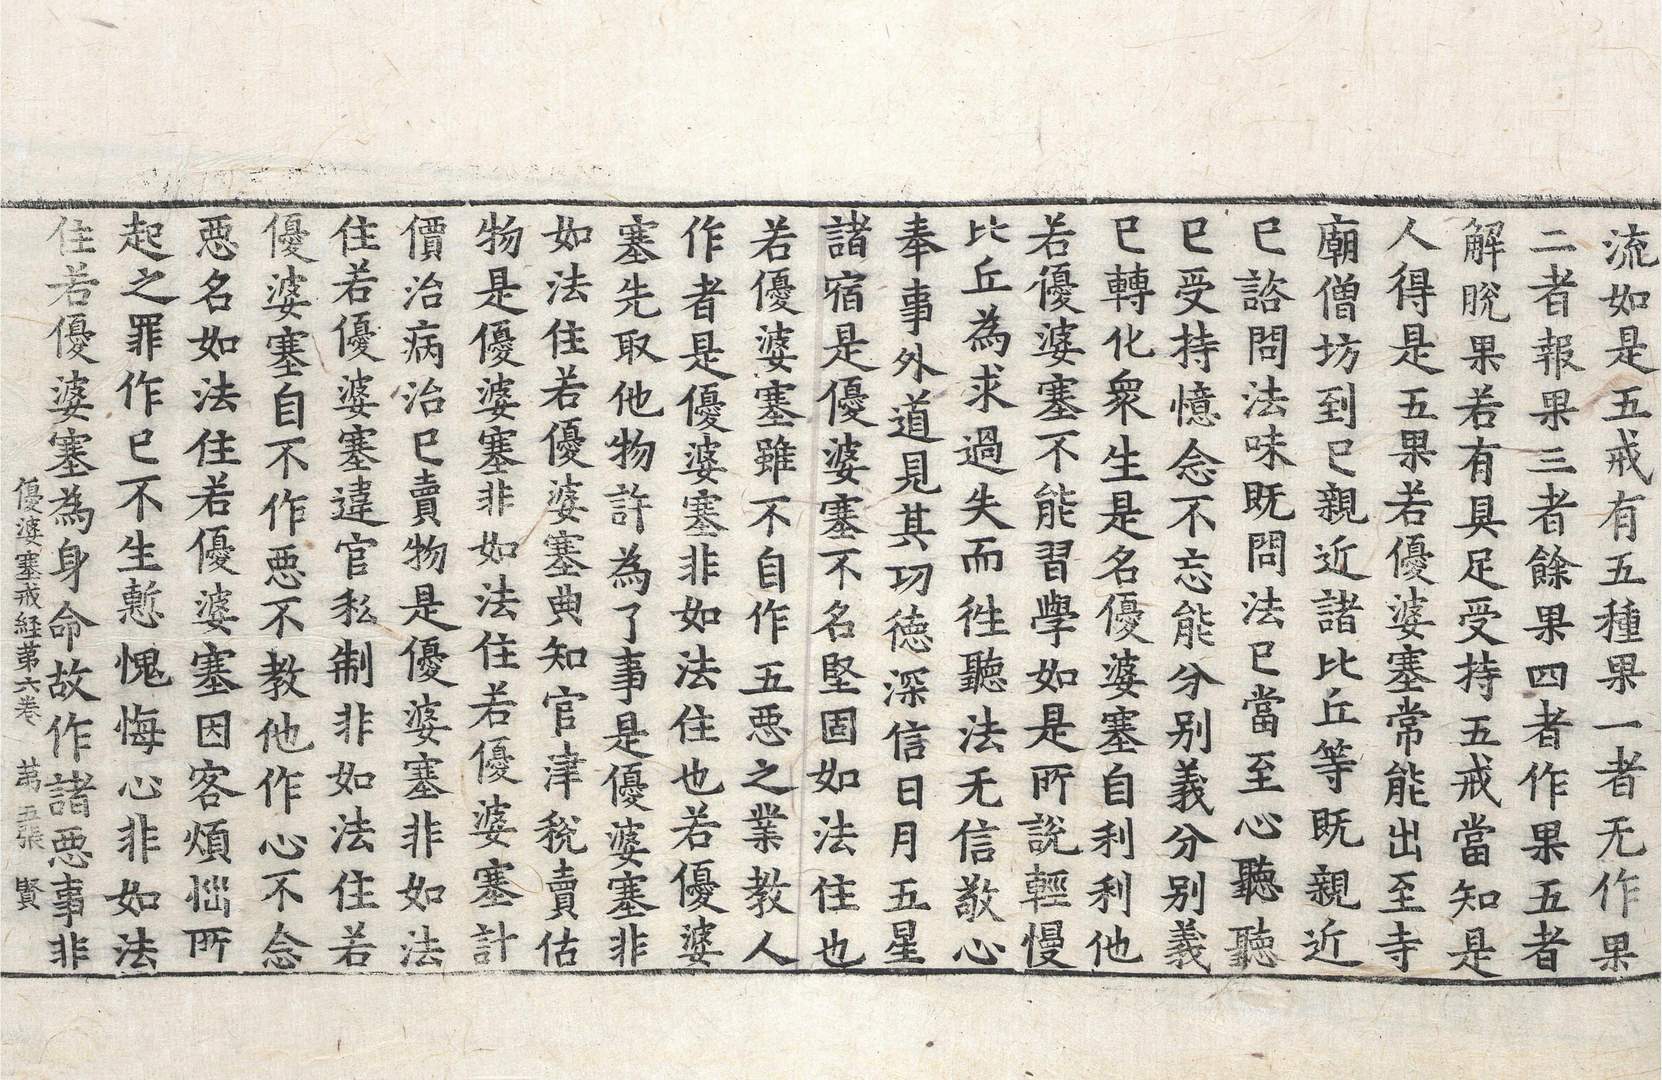 流如是五戒有五種果一者无作果
二者報果三者餘果四者作果五者
解脫果若有具足受持五戒當知是
人得是五果若優婆塞常能出至寺
廟僧坊到已親近諸比丘等既親近
已諮問法味既問法已當至心聽聽
已受持憶念不忘能分别義分别義
已轉化衆生是名優婆塞自利利他
若優婆塞不能習學如是所說輕慢
比丘為求過失而徃聽法无信敬心
奉事外道見其功德深信日月五星
諸宿是優婆塞不名堅固如法住也
若優婆塞雖不自作五惡之業教人
作者是優婆塞非如法住也若優婆
塞先取他物許為了事是優婆塞非
如法住若優婆塞典知官津稅賣估
物是優婆塞非如法住若優婆塞計
價治病治已賣物是優婆塞非如法
住若優婆塞違官私制非如法住若
優婆塞自不作惡不教他作心不念
惡名如法住若優婆塞因客煩惱所
起之罪作已不生慙愧悔心非如法
住若優婆塞為身命故作諸惡事非
優婆塞戒経苐六卷 苐五張 賢